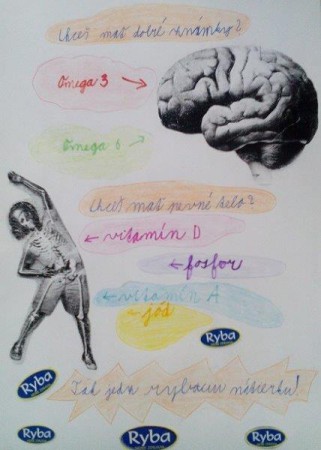 Chceš mať dobré známky?
Omega 3
Omega 6
Chceš mať pevné telo?
vitamín D
fosfor
vitamín A
jód
Ryba
Ryba
Tak jedz rybaciu nátierku!
Ryba
Ryba
Ryba